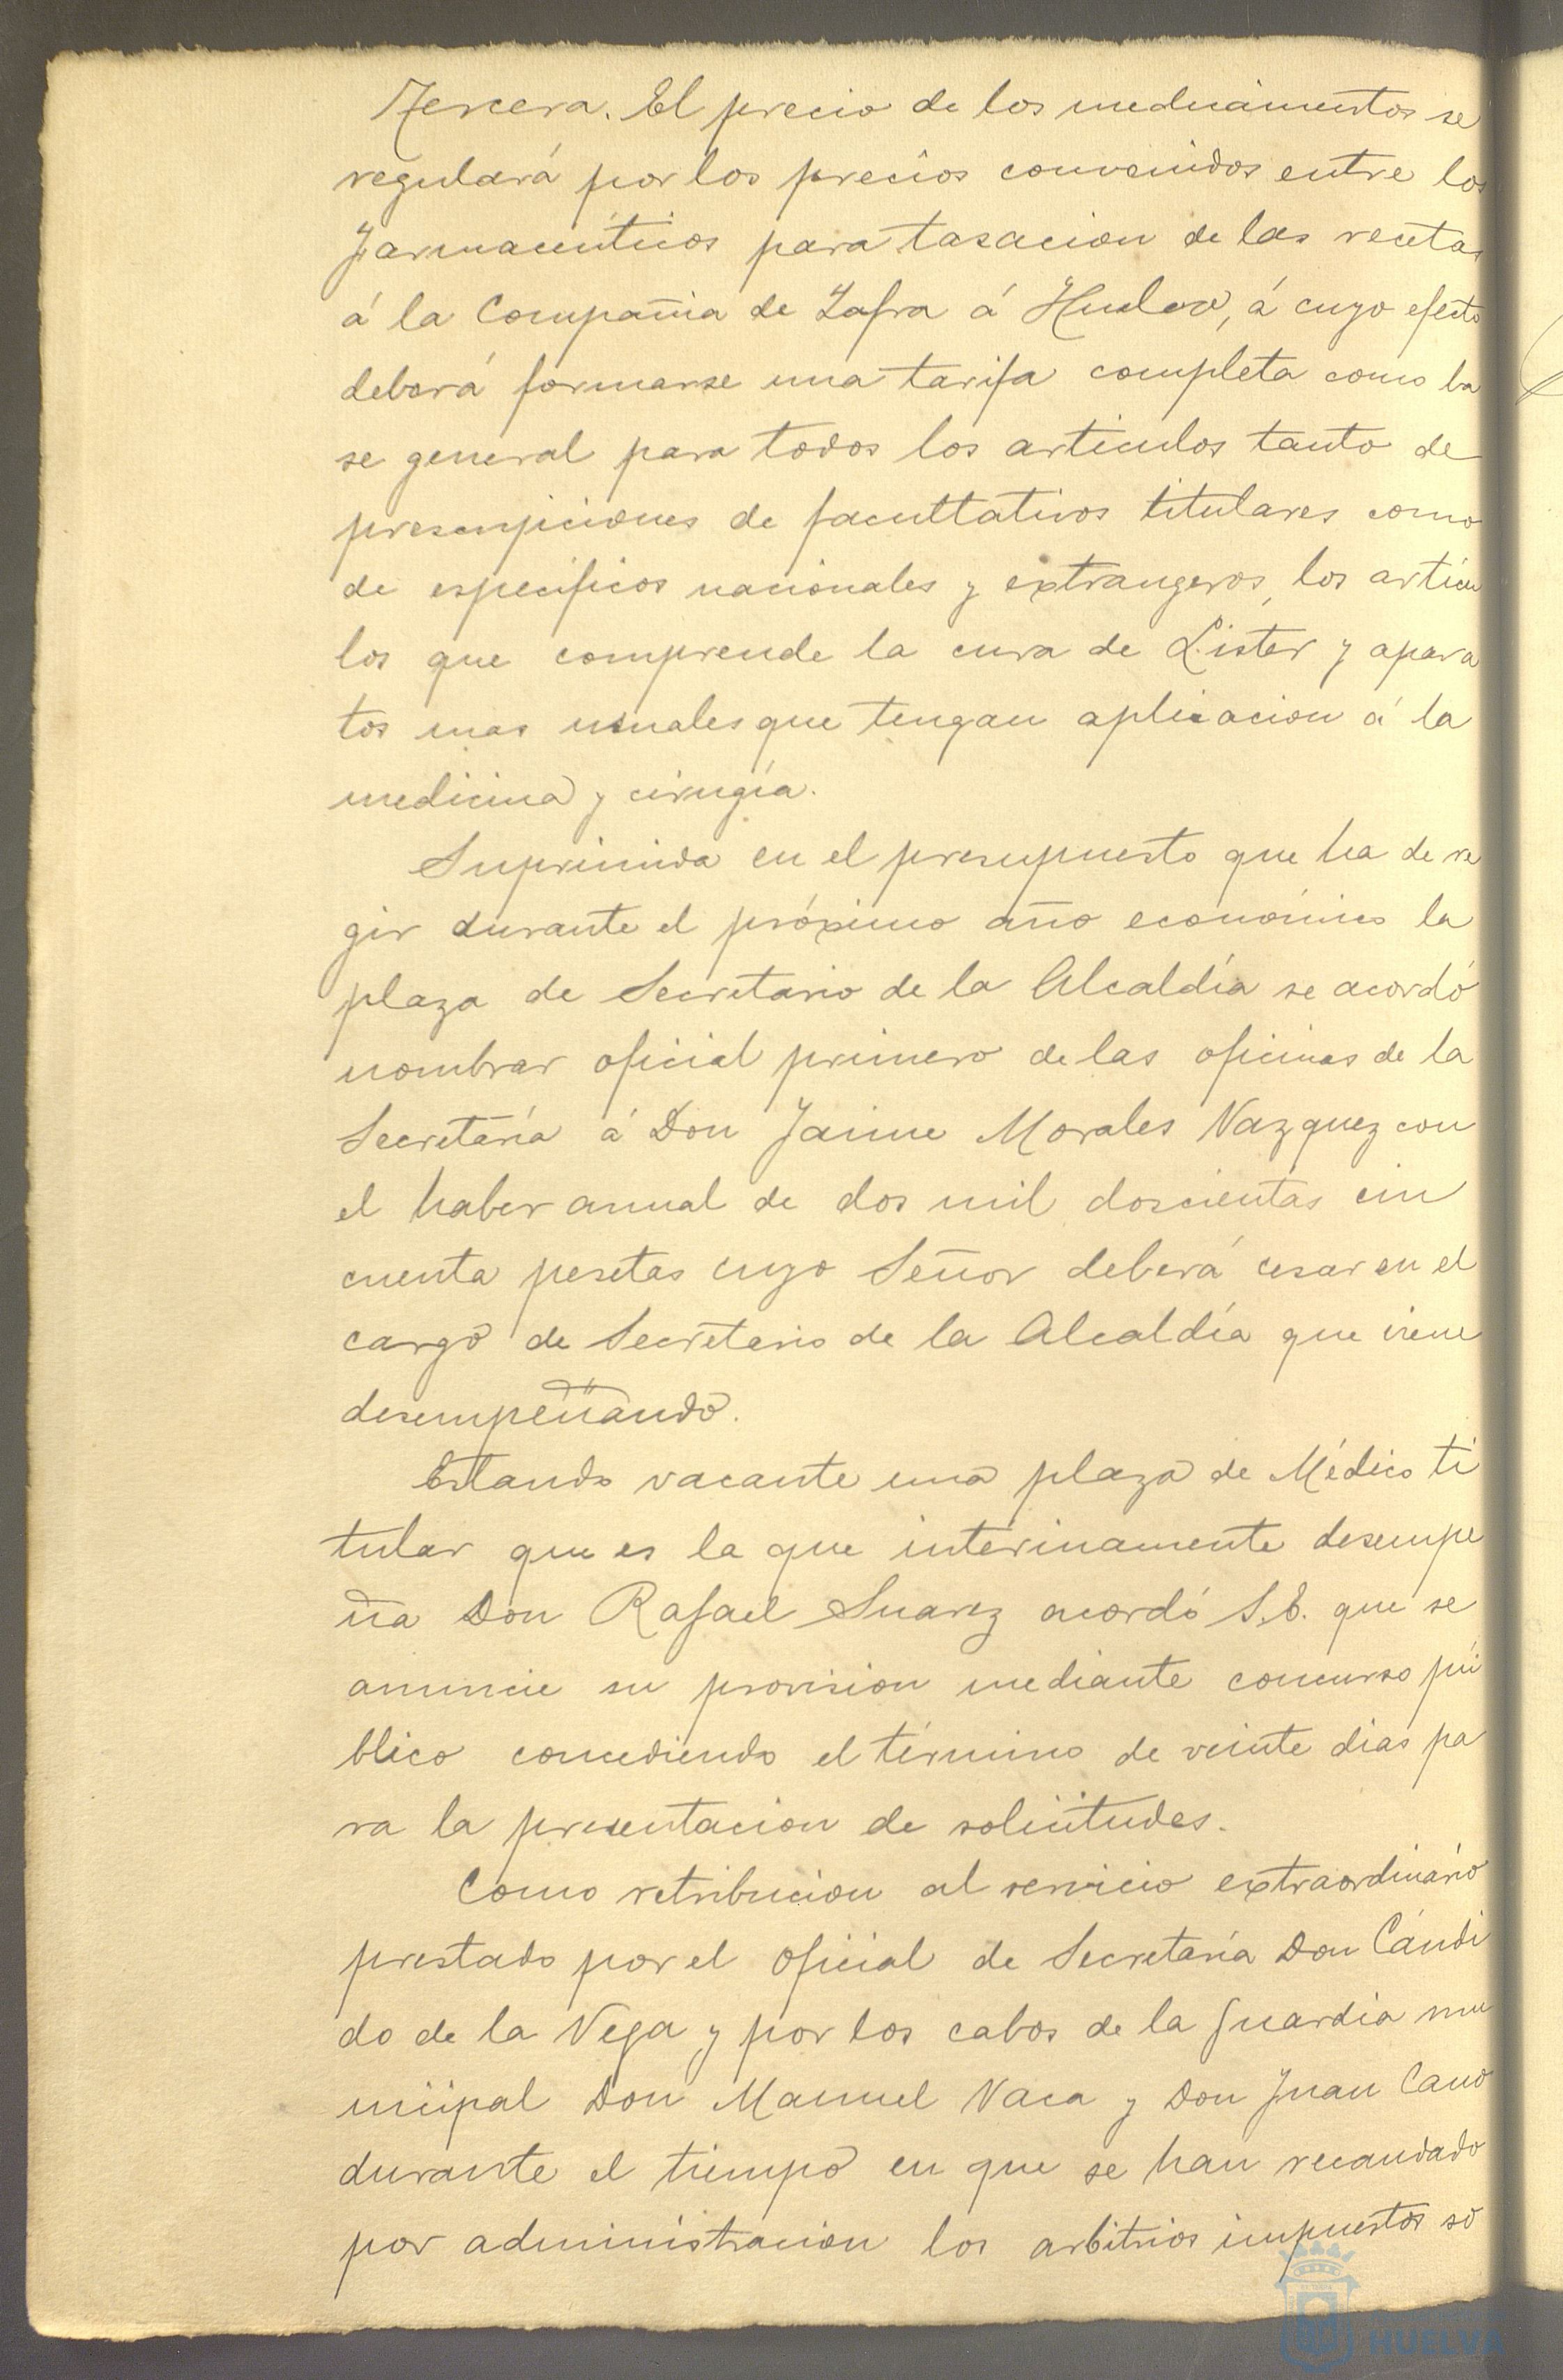 Tercera. El precio de los medicamentos se
regulará por los precios convenidos entre los
farmaceúticos para tasacion de las recetas
á la Compañia de Zafra á Huelva, á cuyo efecto
deberá formarse una tarifa completa como ba
se general para todos los articulos tanto de
prescripciones de facultativos titulares como
de especificos nacionales y extrangeros, los articu
los que comprende la cura de Lister y apara
tos mas usuales que tengan aplicacion á la
medicina y cirugía.
Suprimida en el presupuesto que ha de re
gir durante el próximo año económico la
plaza de Secretario de la Alcaldía se acordó
nombrar oficial primero de las oficinas de la
Secretaría á Don Jaime Morales Vazquez con
el haber anual de dos mil doscientas cin
cuenta pesetas cuyo Señor deberá cesar en el
cargo de Secretario de la Alcaldía que viene
desempeñando.
Estando vacante una plaza de Médico ti
tular que es la que interinamente desempe
ña Don Rafael Suarez acordó S.E. que se
anuncie su provision mediante concurso pú
blico concediendo el término de veinte dias pa
ra la presentacion de solicitudes.
Como retribucion al servicio extraordinario
prestado por el oficial de Secretaría Don Cándi
do de la Vega y por los cabos de la Guardia mu
nicipal Don Manuel Vaca y Don Juan Cano
durante el tiempo en que se han recaudado
por administracion los arbitrios impuestos so
HUELVA